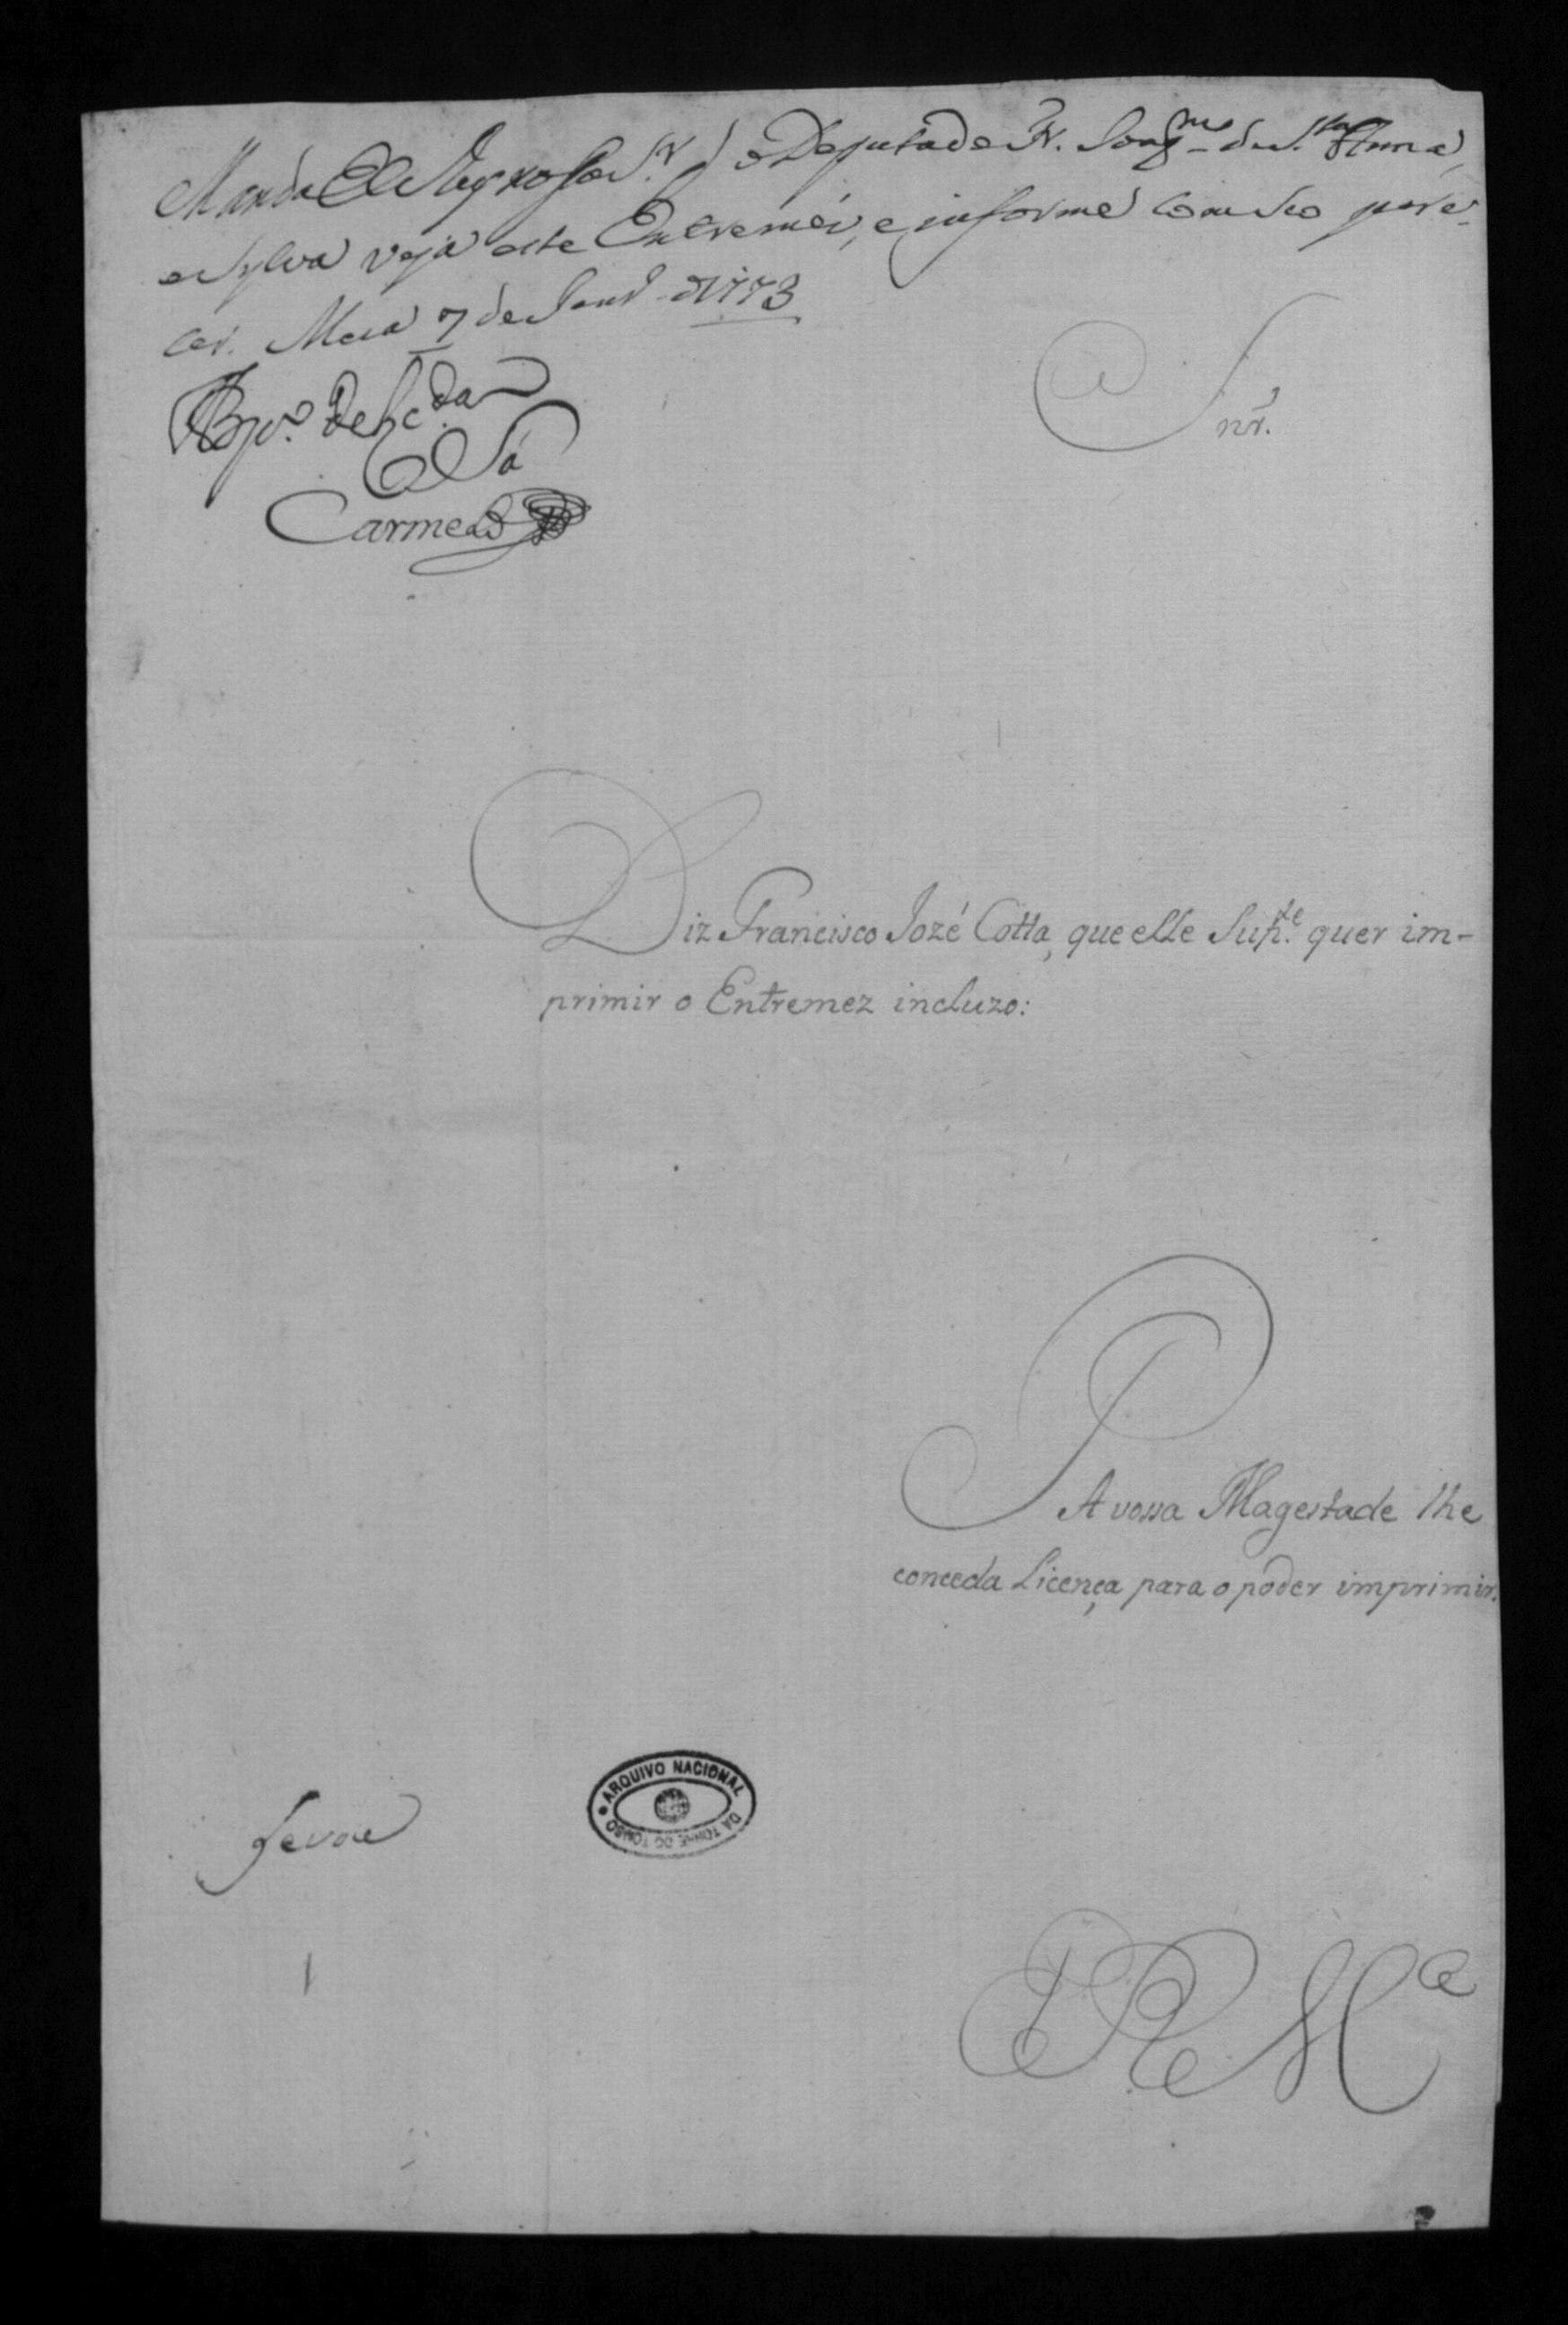 Manda El Rey nosso S.r q̃ o Deputado Fr. Joaq.m de S.ta Anna,
e Sylva veja este Entremés, e informe com seo pare-
cer. Mesa 7 de Janr.o de 1773
Bpo. de
Sá
Carmelo
Snr.
Diz Francisco Jozé Cotta, que elle Sup.te quer im-
primir o Entremez incluzo:
P A vossa Magestade lhe
conceda Licença para o poder imprimir.
ARQUIVO NACIONAL
DA TORRE DO TOMBO
E R M.ce